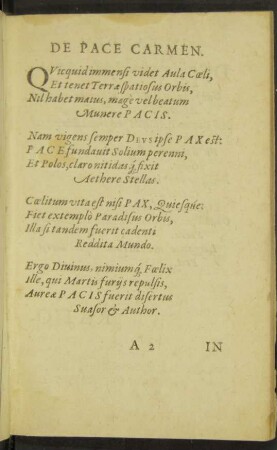 DE PACE CARMEN.
QVicquid immensi videt Aula Cœli,
Et tenet Terræ spatiosus Orbis,
Nil habet maius, mage vel beatum
Munere PACIS.
Nam vigens semper DEVS ipse PAX est:
PACE fundauit Solium perenni,
Et Polos, claro nitidas q́; fixit
Aethere Stellas.
Cœlitum vita est nisi PAX, Quiesque:
Fiet extemplò Paradisus Orbis,
Illa si tandem fuerit cadenti
Reddita Mundo.
Ergo Diuinus, nimium q́; Fœlix
Ille, qui Martis furijs repulsis,
Aureæ PACIS fuerit disertus
Suasor & Author.
A 2 IN